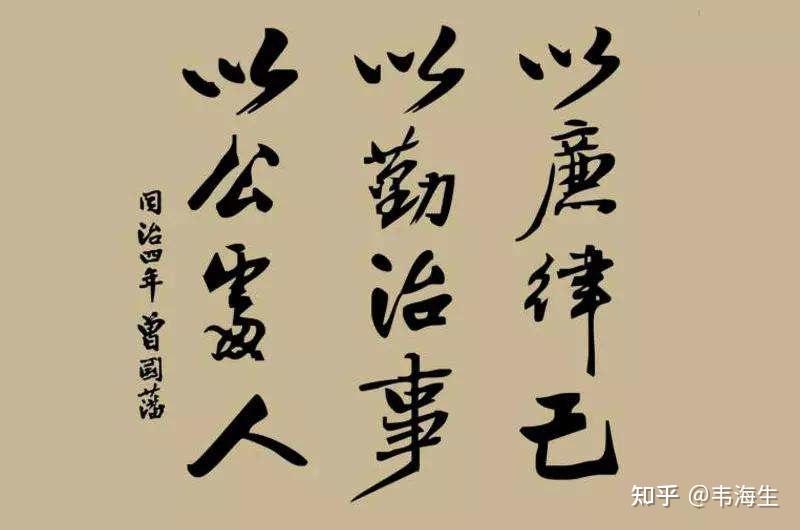 以廉律己
以勤治事
以公處人
同治四年 曾國藩
知乎 @韦海生